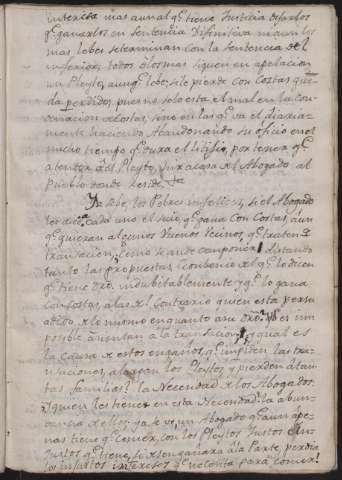 interesa mas aun al qe. tiene Justicia dejarlos
qe. ganarlos en sentencia Difinitiva ni aun los
mas lebes se terminan con la sentencia del
inferior, todos ô los mas siguen en apelacion
un Pleyto, aunqe. lebe, si le pierde con costas que
da perdido, pues no solo esta el mal en la con
denacion de costas, sino en las qe. va el diaria-
mente haciendo Abandonando su oficio en el
mucho tiempo qe. dura el litijio, por tener qe.
atender al Pleyto, ir a casa del Abogado al
Pueblo donde reside
los Pobres infelices, si el Abogado
cada uno el suio, qe. gana con costas, aun
qe. quieran algunos buenos Vecinos, qe. traten de
transacion, como se ande componer distando
tanto las propuestas, conbencido del qe. le dicen
qe. tiene dro. indubitablemente y qe. lo gana
con costas, al otro contrario quien esta persu
adido de lo mismo en quanto a su dro. es im
posible asientan a la transacion, y qual es
la causa de estos engaños, qe. impiden las tran
saciones, alargan los Pleytos y pierden a tan
tas familias? la Necesidad de los Abogados.
Y quien los tiene en esta Necesidad? la abun
dancia de ellos, ya se ve, un Abogado qe. aun ape
nas tiene qe. comer, con los Pleytos Justos
Injustos qe. tiene, si desengañara â la Parte, perdia
los injustos intereses qe. necesita para comer!